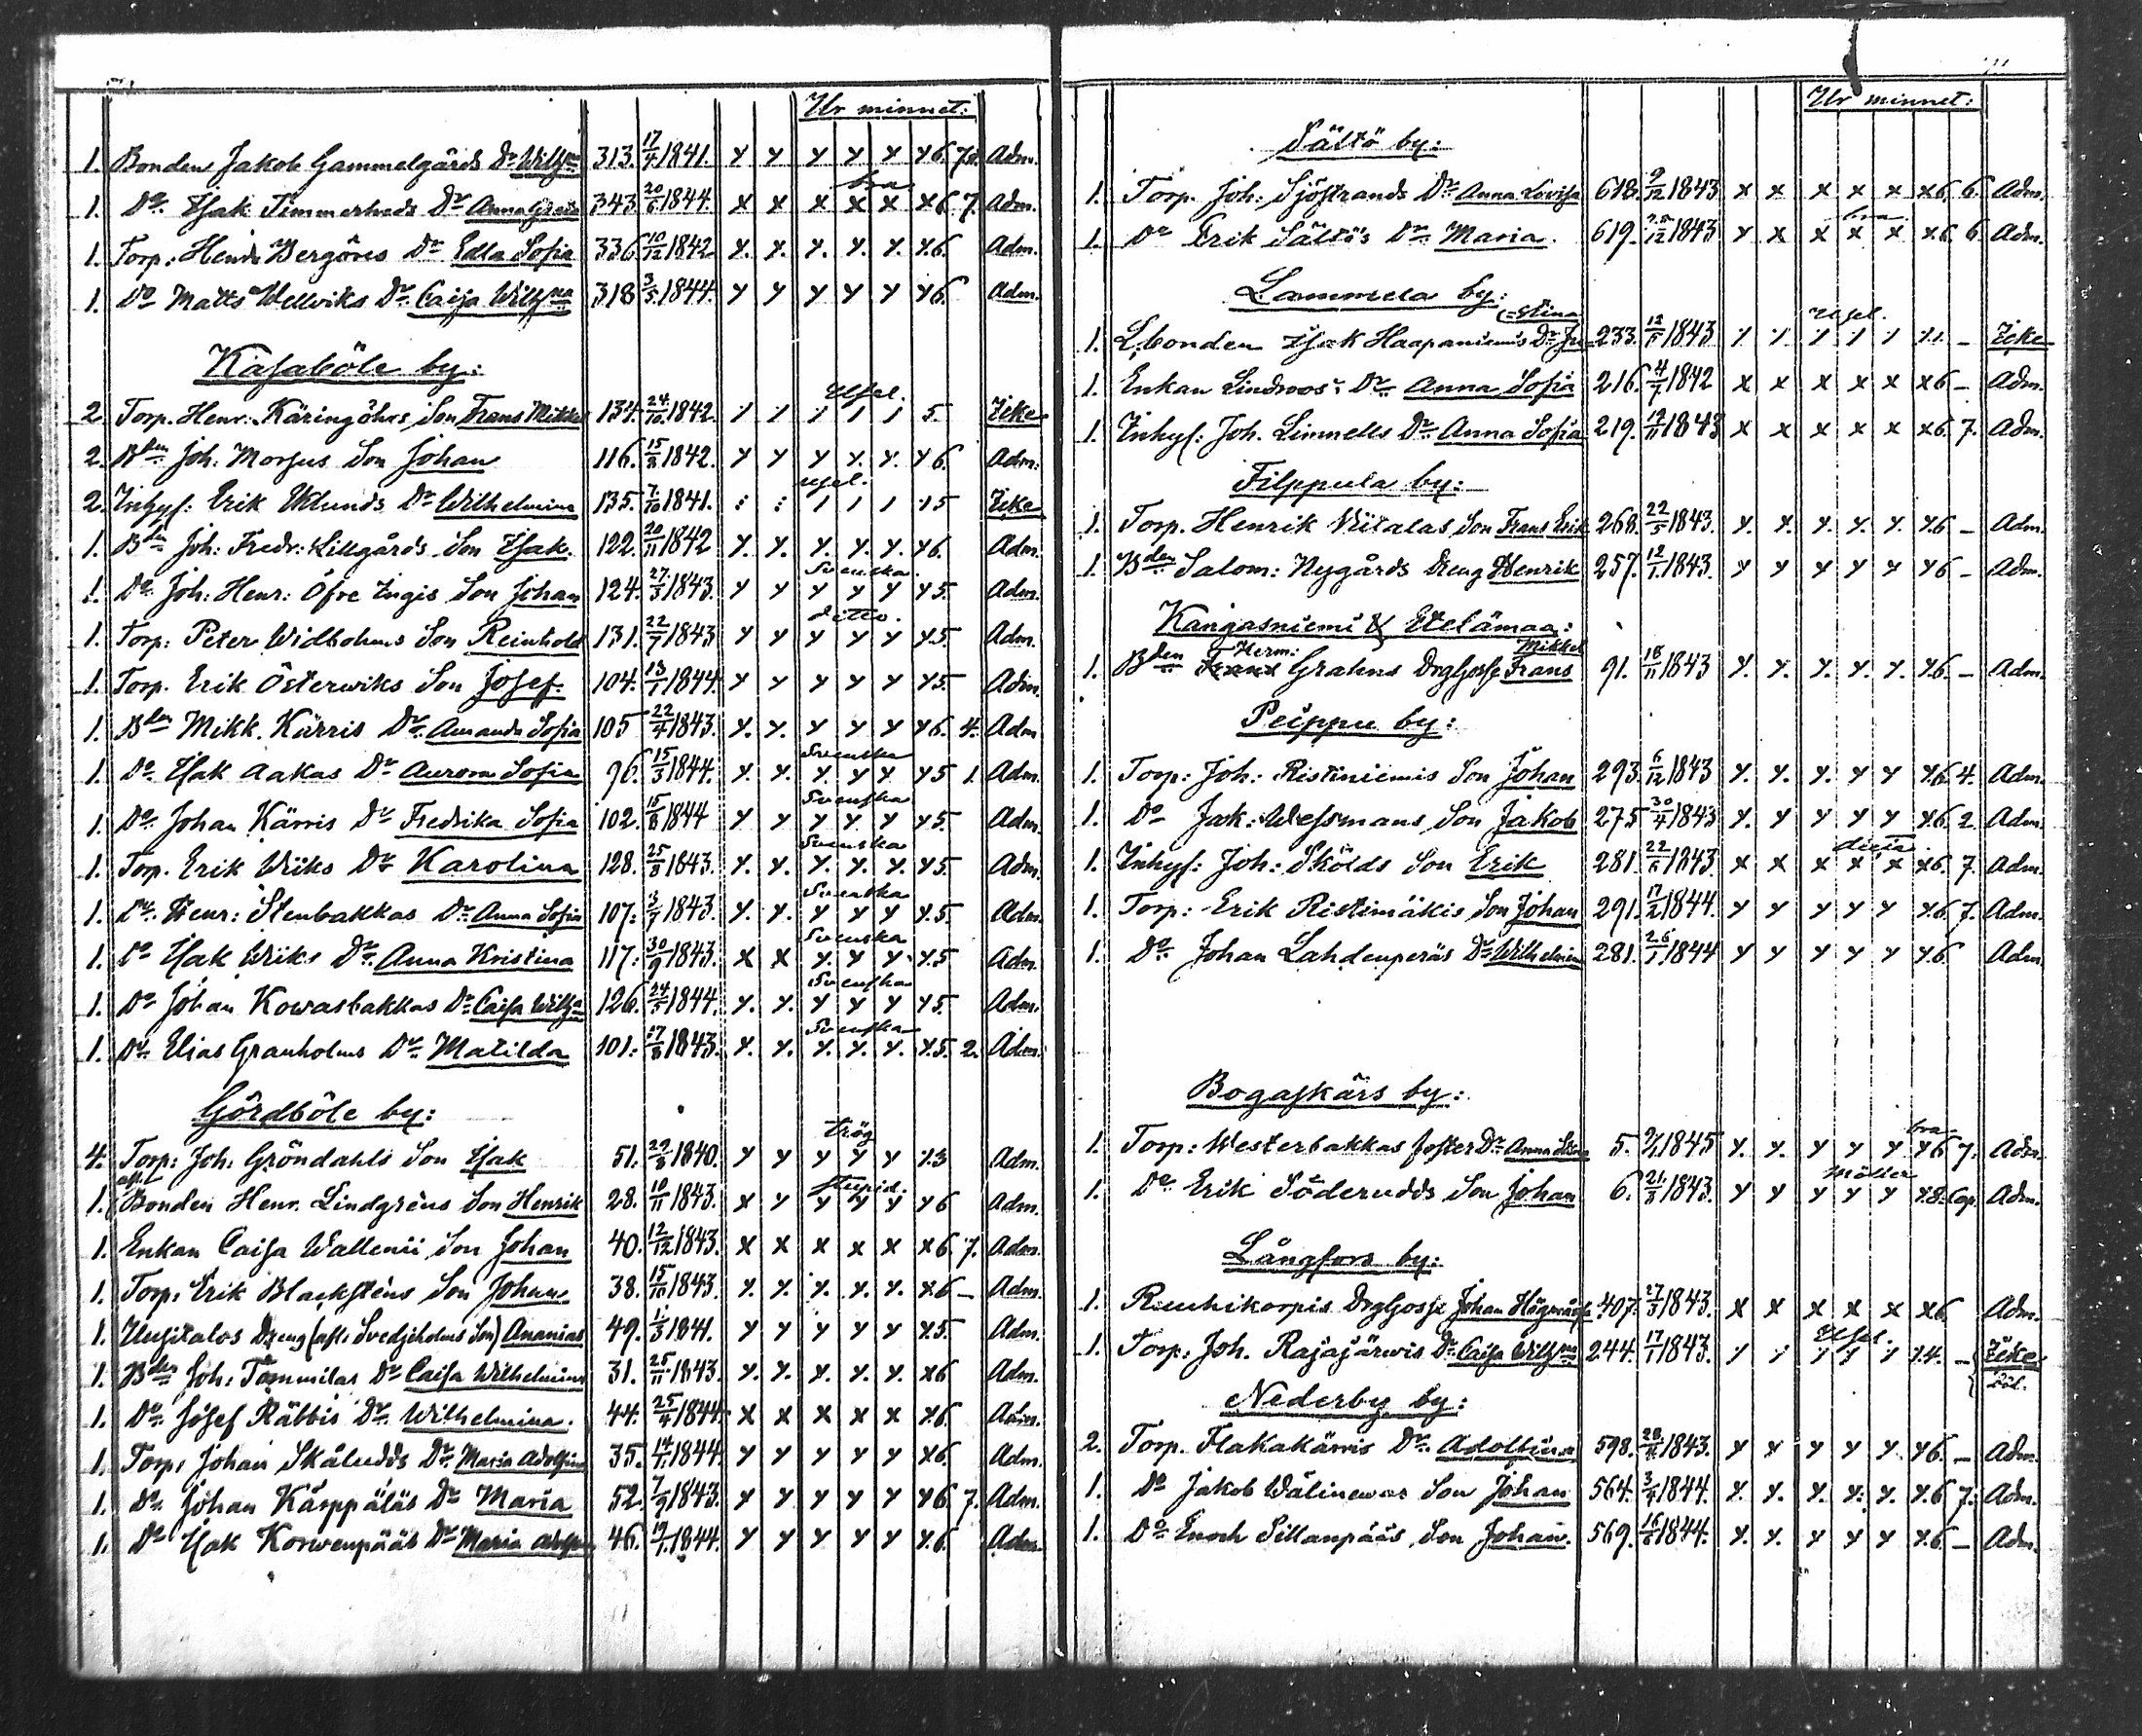 Ur minnet:
1. Bonden Jakob Gammelgårds Dr Wilhna 313. 17/4 1841. y y y y y y 6. 7. Adm.
bra
1. Do Isak Timmerheds Dr Anna Greta 343. 20/6 1844. x x x x x x 6 7. Adm.
1. Torp: Henr Bergöres Dr Edla Sofia 336 10/12 1842 y. y. y. y. y. y.6. Adm.
1. Do Matts Wellviks Dr Caisa Wilhna 318 3/5 1844. y y y y y y6. Adm.
Kasaböle by:
Usel.
2. Torp. Henr: Käringöhrs Son Frans Mikkel 134. 24/10 1842. / / / / / 5. Icke
2. Bden Joh: Morsus Son Johan 116. 15/8 1842. y y y y. y. y 6. Adm:
usel.
2. Inhys: Erik Eklunds Dr Wilhelmina 135. 7/10 1841. : : / / / 15 Icke
1. Bden Joh: Fredr: Lillgårds Son Isak 122. 20/11 1842 y. y. y. y. y. y6. Adm.
Svenska.
1. Do Joh: Henr: Öfre Ingis Son Johan 124. 27/3 1843. y y y y y y5. Adm.
ditto.
1. Torp: Peter Widbohms Son Reinhold 131. 22/7 1843 y y y y y y.5. Adm.
1. Torp. Erik Österwiks Son Josef. 104. 13/1 1844. y y y y y y5. Adm.
1. Bden Mikk. Kärris Dr Amanda Sofia 105 22/4 1843. y. y. y y y y6. 4. Adm
Svenska
1. Do Isak Aakas Dr Aurora Sofia 96. 15/3 1844. y. y. y. y y. y5 1. Adm.
Svenska
1. Do Johan Kärris Dr Fredrika Sofia 102. 15/6 1844 y y y y. y y5. Adm.
Svenska
1. Torp. Erik Wiiks Dr Karolina 128. 25/8 1843. y. y. y. y. y. y5. Adm.
Svenska
1. Do Henr: Stenbakkas Dr Anna Sofia 107. 3/7 1843. y. y. y y y y.5. Adm.
Svenska
1. Do Isak Wiiks Dr Anna Kristina 117. 30/9 1843. x x y. y y y.5 Adm.
Svenska
1. Do Johan Kowasbakkas Dr Caisa Wilhna 126. 24/5 1844. y. y. y y y y5. Adm.
Svenska
1. Do Elias Granholms Dr Matilda 101. 17/8 1843. y. y. y. y. y. y.5. 2. Adm.
Gördböle by:
trög
4. Torp: Joh: Gröndahls Son Isak 51. 29/8 1840. y y y y y y.3 Adm.
stupid.
1. Bonden Henr. Lindgréns Son Henrik 28. 10/11 1843. x y y y y y6 Adm.
1. Enkan Caisa Wallenii Son Johan 40. 12/12 1843. x x x x x x6. 7. Adm.
1. Torp: Erik Blacksténs Son Johan 38. 15/10 1843. y. y. y. y. y. y.6 – Adm.
1. Uusitalos Dreng (afl. Svedjeholms Son) Ananias 49. 1/3 1841. y y y y y y.5. Adm.
1. Bden Joh: Tommilas Dr Caisa Wilhelmina 31. 25/11 1843. y. y. y. y. y. x6 Adm.
1. Do Josef Räbbis Dr Wilhelmina. 44. 25/4 1844. x x x x x y.6. Adm.
1. Torp: Johan Skåludds Dr Maria Adolfina 35. 14/1 1844. y y y y y x6. Adm.
1. Do Johan Kärppäläs Dr Maria 52. 7/9 1843. y y y y y y6 7. Adm.
1. Do Isak Korwenpääs Dr Maria 46. 19/1 1844. y y y y y y.6. Adm.
Ur minnet:
Sältö by:
1. Torp. Joh: Sjöstrands Dr Anna Lovisa 618. 9/12 1843 x x x x x x6. 6. Adm.
bra
1. Do Erik Sältös Dr Maria. 619. 12 1843 y x x x x x6. 6. Adm.
Lammela by:
=Stina
Usel.
1. Lbonden Isak Haapaniemis Dr 233. 12/5 1843 / / / / / – Icke
1. Enkan Lindroos's Dr Anna Sofia 216. 4/7 1842 x x x x x x6 – Adm.
1. Inhys: Joh. Linnells Dr Anna Sofia 219. 19/11 1843 x x x x x x6. 7. Adm.
Filppula by:
1. Torp. Henrik Wiitalas Son Frans Erik 268. 22/5 1843. y. y. y. y. y. y.6 – Adm.
1. Bden Salom: Nygårds Dreng Henrik 257. 12/1 1843. y y y y y y6 – Adm.
Kangasniemi & Etelämaa:
Herm: Mikkel
1. Bden Frans Grahns DrgGosse Frans 91. 18/11 1843 y. y. y. y. y. y.6. – Adm.
Peippu by:
1. Torp: Joh: Ristiniemis Son Johan 293. 6/12 1843 y. y. y. y y y.6. 4. Adm.
1. Do Jak: Wessmans Son Jakob 275 30/4 1843 y. y y y y y.6. 2. Adm.
1. Inhys: Joh: Skölds Son Erik 281. 22/6 1843. x x x x x x6. 7. Adm.
1. Torp: Erik Ristimäkis Son Johan 291. 17/2 1844. y y y y y y.6. 7. Adm.
1. Do Johan Lahdenperäs Dr Wilhelmina 281. 26/1 1844 y y y y y y.6. Adm.
Bogaskärs by:
bra
1. Torp: Westerbakkas foster Dr Anna 5. 1845 y. y. y y y y6 7. Adm.
1. Do Erik Söderudds Son Johan 6. 21/3 1843. y y y y y y.8. Adm.
Långfors by:
1. Ruuhikorpis DrgGosse Johan 407. 27/3 1843. x x x x x x6 Adm.
Usel.
1. Torp: Joh. Rajajärwis Dr Caisa Wilhna 244. 17/1 1843. / / / / / 1.4. – Icke
Nederby by:
2. Torp. Flakakärris Dr Adolfina 598. 28 1843. y y y y y y6. – Adm.
1. Do Jakob Wälinewas Son Johan 564. 3/4 1844. y. y. y. y. y. y.6 7. Adm.
1. Do Enoch Sillanpääs Son Johan. 569. 16/6 1844. y. y. y y y y.6. – Adm.